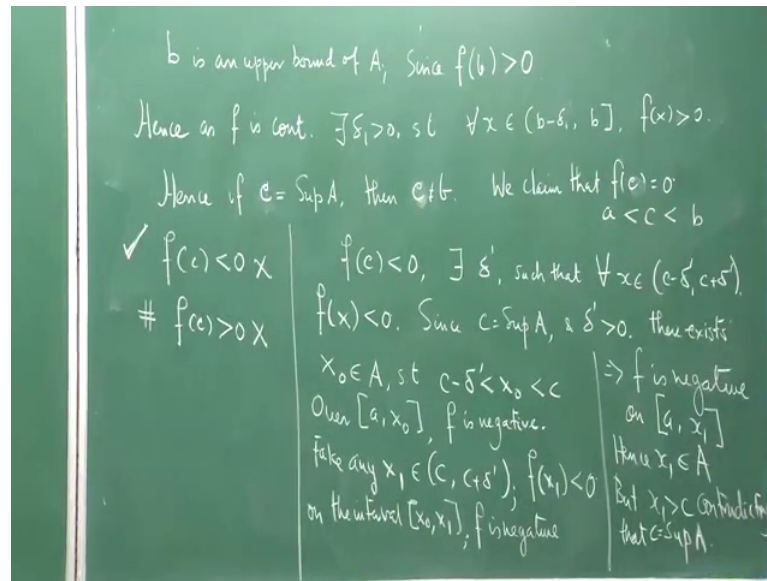 b is an upper bound of A, Since f(b) > 0
Hence as f is cont. ∃ δ₁ > 0, st ∀ x ∈ (b-δ₁, b], f(x) > 0.
Hence if c = Sup A, then c ≠ b. We claim that f(c) = 0
a < c < b
✓ f(c) < 0 X
# f(c) > 0 X
f(c) < 0, ∃ δ', such that ∀ x ∈ (c-δ', c+δ'),
f(x) < 0. Since c = Sup A, & δ' > 0. there exists
x₀ ∈ A, st c-δ' < x₀ < c
Over [a, x₀], f is negative.
Take any x₁ ∈ (c, c+δ'); f(x₁) < 0
on the interval [x₀, x₁], f is negative
⇒ f is negative
on [a, x₁]
Hence x₁ ∈ A
But x₁ > c Contradicting
that c = Sup A.